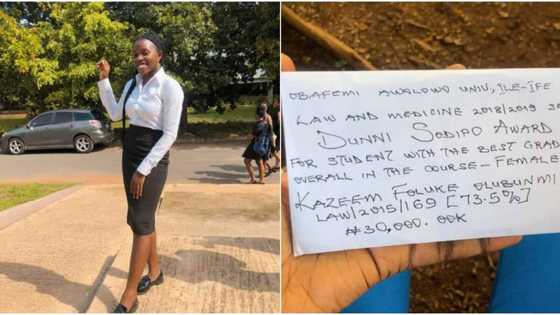 OBAFEMI AWOLOWO UNIV, ILE-IFE
LAW AND MEDICINE 2018/2019 S
DUNNI SODIPO AWARD
FOR STUDENT WITH THE BEST GRAD
OVERALL IN THE COURSE - FEMALE
KAZEEM FOLUKE OLUBUNMI
LAW/2015/169 [73.5%]
₦30,000.00K